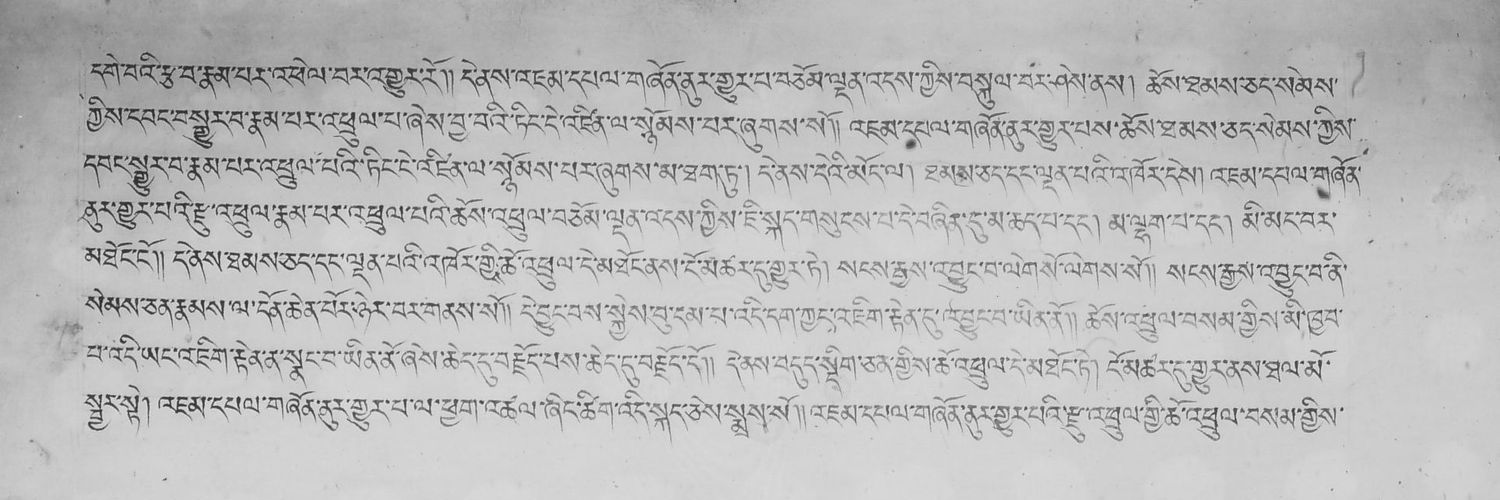 དགེ་བའི་རྩ་བ་རྣམ་པར་འཕེལ་བར་འགྱུར་རོ།། དེ་ནས་འཇམ་དཔལ་གཞོན་ནུར་གྱུར་པ་བཅོམ་ལྡན་འདས་ཀྱིས་བསྐུལ་བར་ཤེས་ནས། ཆོས་ཐམས་ཅད་སེམས་
ཀྱིས་དབང་བསྒྱུར་བ་རྣམ་པར་འཕྲུལ་པ་ཞེས་བྱ་བའི་ཏིང་ངེ་འཛིན་ལ་སྙོམས་པར་ཞུགས་སོ།། འཇམ་དཔལ་གཞོན་ནུར་གྱུར་པས་ཆོས་ཐམས་ཅད་སེམས་ཀྱིས་
དབང་སྒྱུར་བ་རྣམ་པར་འཕྲུལ་པའི་ཏིང་ངེ་འཛིན་ལ་སྙོམས་པར་ཞུགས་མ་ཐག་ཏུ། དེ་ནས་དེའི་མོད་ལ། ཐམས་ཅད་དང་ལྡན་པའི་འཁོར་དེས། འཇམ་དཔལ་གཞོན་
ནུར་གྱུར་པའི་རྫུ་འཕྲུལ་རྣམ་པར་འཕྲུལ་པའི་ཆོས་འཕྲུལ་བཅོམ་ལྡན་འདས་ཀྱིས་ཇི་སྐད་གསུངས་པ་དེ་བཞིན་དུ་མ་ཆད་པ་དང། མ་ལྷག་པ་དང། མི་མང་བར་
མཐོང་ངོ།། དེ་ནས་ཐམས་ཅད་དང་ལྡན་པའི་འཁོར་གྱི་ཆོ་འཕྲུལ་དེ་མཐོང་ནས་ངོ་མཚར་དུ་གྱུར་ཏེ། སངས་རྒྱས་འབྱུང་བ་ལེགས་སོ་ལེགས་སོ།། སངས་རྒྱས་འབྱུང་བ་ནི་
སེམས་ཅན་རྣམས་ལ་དོན་ཆེན་པོར་ཉེར་བར་གནས་སོ།། དེ་བྱུང་བས་སྐྱེས་བུ་དམ་པ་འདི་དག་ཀྱང་འཇིག་རྟེན་དུ་འབྱུང་བ་ཡིན་ནོ།། ཆོས་འཕྲུལ་བསམ་གྱིས་མི་ཁྱབ་
པ་འདི་ཡང་འཇིག་རྟེན་ན་སྣང་བ་ཡིན་ནོ་ཞེས་ཆེད་དུ་བརྗོད་པས་ཆེད་དུ་བརྗོད་དོ།། དེ་ནས་བདུད་སྡིག་ཅན་གྱིས་ཆོ་འཕྲུལ་དེ་མཐོང་ཏེ། ངོ་མཚར་དུ་གྱུར་ནས་ཐལ་མོ་
སྦྱར་སྟེ། འཇམ་དཔལ་གཞོན་ནུར་གྱུར་པ་ལ་ཕྱག་འཚལ་ཞིང་ཚིག་འདི་སྐད་ཅེས་སྨྲས་སོ།། འཇམ་དཔལ་གཞོན་ནུར་གྱུར་པའི་རྫུ་འཕྲུལ་གྱི་ཆོ་འཕྲུལ་བསམ་གྱིས་